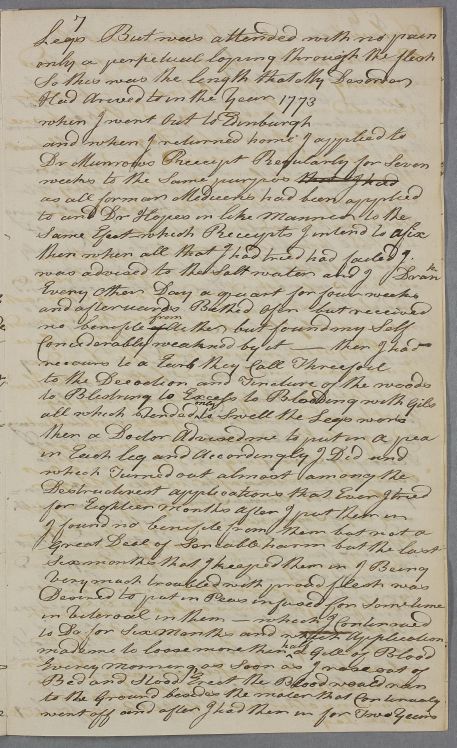 7
Legs But was attended with no pain
only a perpetual loping through the flesh
So this was the length that My Desorder
Had Arived to in the Year 1773
when I went out to Edinburgh
and when I returned home I applied to
Dr Munrows Receept Regularly for Seven
weeks to the Same purpos that I had
as all forman Medecens had been applied
to and Dr Hopes in like Manner to the
Same Efect which Receipts I intend to afix
then when all that I had tried had faeled I
was advised to the Salt water and I Drank
Every Other Day a quart for four weeks
and afterwards Bathed Ofen but received
no benifile from Either but found my Self
Considarably weakened by it — then I had
recours to a Earb they Call Threefoil
to the Decoction and Tincture of the woods
to Blestring to Excess to Blooding with Gils
all which tended only to Swell the Legs wors
then a Doctor Advised me to put in a pea
in Each leg and Accordingly I Did and
which Turned out almost among the
Destructivest applications that Ever I tried
for Eighteen months after I put them in
I found no benifile from them but not a
Great Deal of Sencable harm but the last
Six months that I keaped them in I Being
Very much troubled with proud flesh was
Desired to put in Peas infused for Some time
in Veteroal in them — which I Continued
to Do for Six Months and Application
made me to loose more then half a Gile of Blood
Every morning as Soon as I rase out of
Bed and Stood Erect the Blood would run
to the Ground besides the mater that Continualy
went off and after I had them in for Two Years